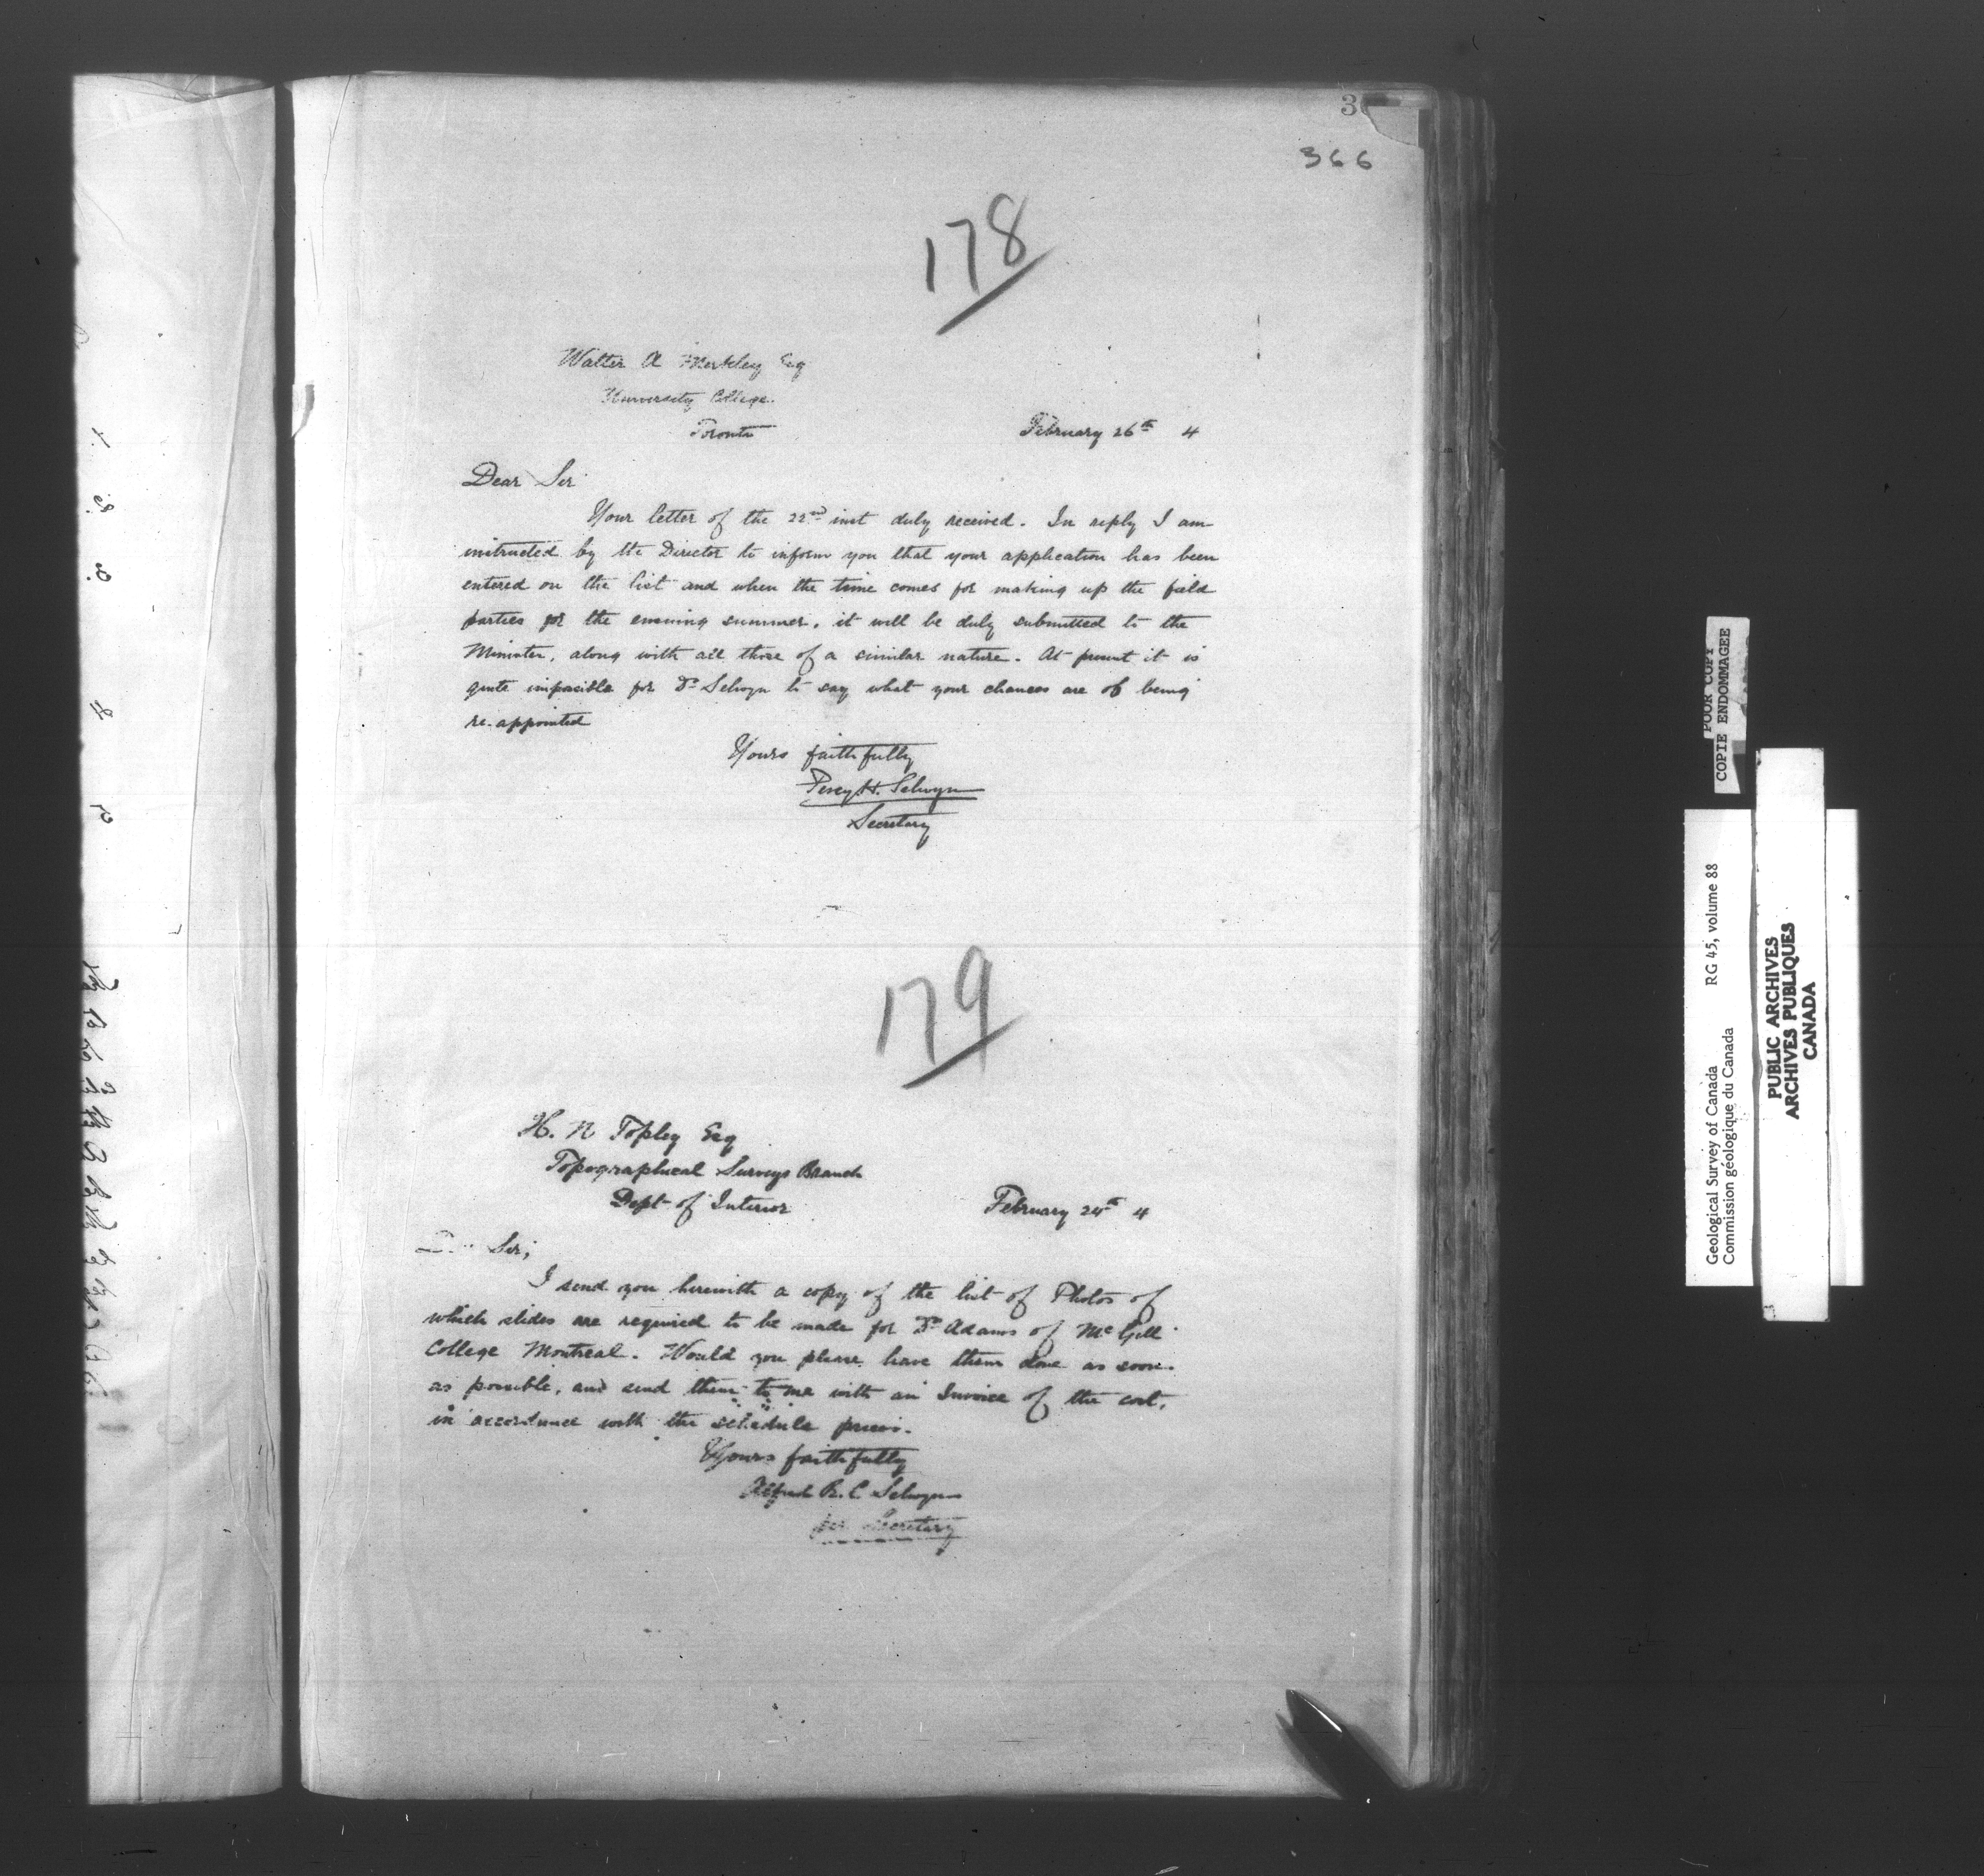 3
366
178
Walter A Merkley Esq
University College.
Toronto
February 26th 4
Dear Sir
Your letter of the 22nd inst duly received. In reply I am
instructed by the Director to inform you that your application has been
entered on the list and when the time comes for making up the field
parties for the ensuing summer, it will be duly submitted to the
Minister, along with all those of a similar nature. At present it is
quite impossible for Dr Selwyn to say what your chances are of being
re-appointed
Yours faithfully
Percy H. Selwyn
Secretary
179
H. N Topley Esq
Topographical Surveys Branch
Dept of Interior
February 24th 4
Sir;
I send you herewith a copy of the list of Photos of
which slides are required to be made for Dr Adams of McGill
College Montreal. Would you please have them done as soon
as possible, and send them to me with an Invoice of the cost,
in accordance with the schedule prices.
Yours faithfully
Alfred R. C Selwyn
per Secretary
POOR COPY
COPIE ENDOMMAGEE
Geological Survey of Canada RG 45, volume 88
Commission géologique du Canada
PUBLIC ARCHIVES
ARCHIVES PUBLIQUES
CANADA